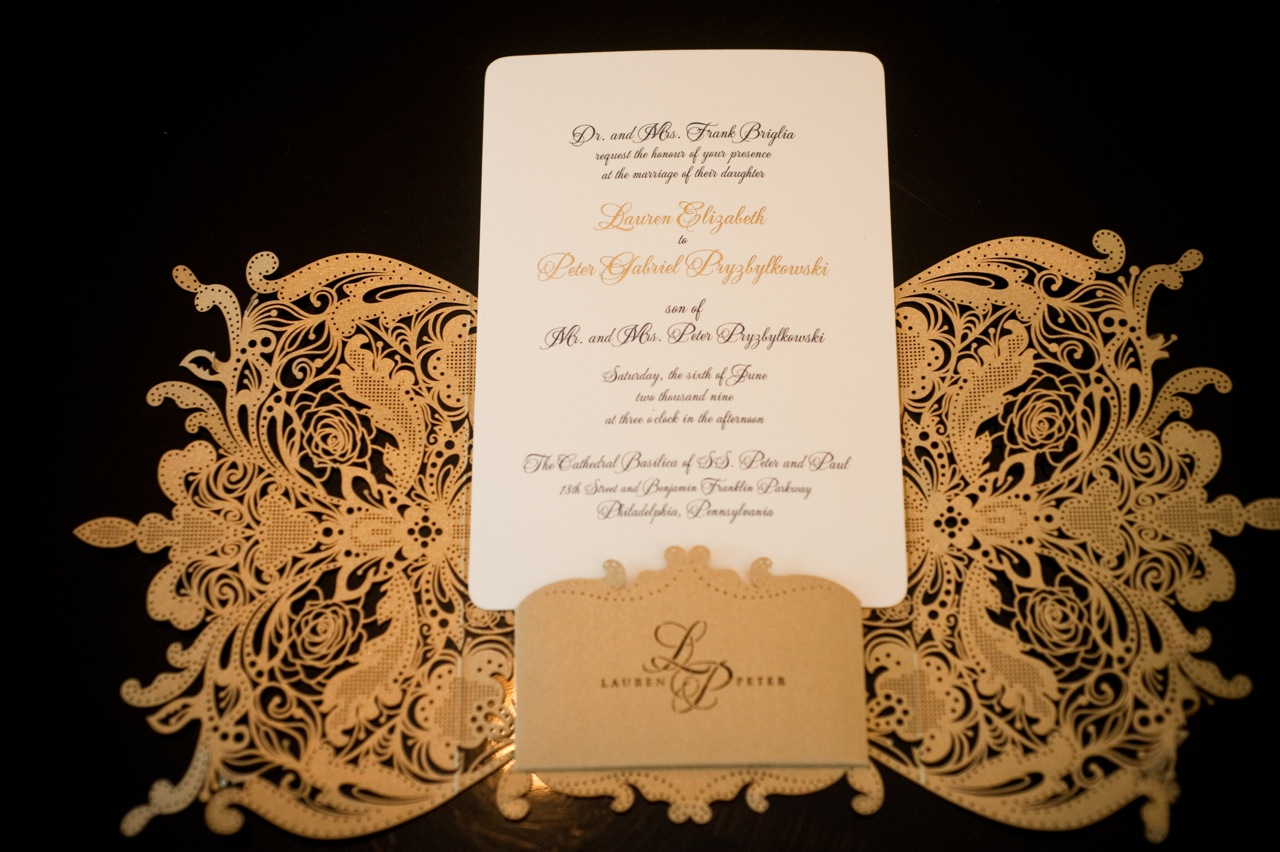 Dr. and Mrs. Frank Briglia
request the honour of your presence
at the marriage of their daughter
Lauren Elizabeth
to
Peter Gabriel Pryzbylkowski
son of
Mr. and Mrs. Peter Pryzbylkowski
Saturday, the sixth of June
two thousand nine
at three o'clock in the afternoon
The Cathedral Basilica of SS. Peter and Paul
18th Street and Benjamin Franklin Parkway
Philadelphia, Pennsylvania
LP
LAUREN PETER